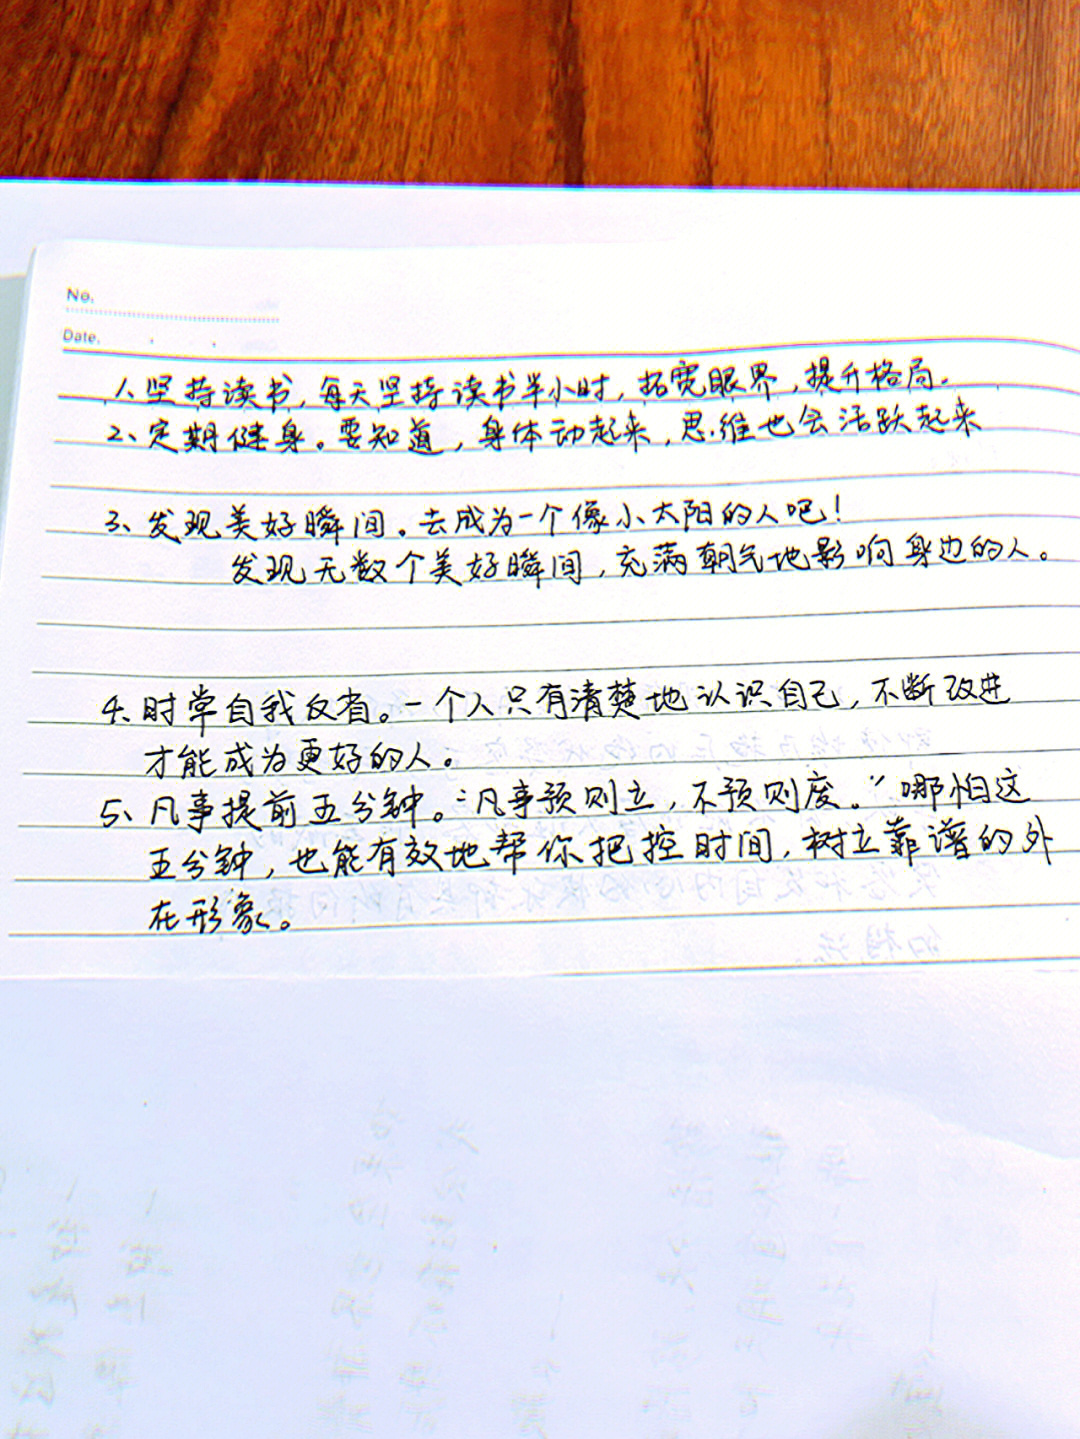 No.
Date.
1、坚持读书,每天坚持读书半小时,拓宽眼界,提升格局.
2、定期健身。要知道,身体动起来,思维也会活跃起来
3、发现美好瞬间。去成为一个像小太阳的人吧!
发现无数个美好瞬间,充满朝气地影响身边的人。
4、时常自我反省。一个人只有清楚地认识自己,不断改进
才能成为更好的人。
5、凡事提前五分钟。“凡事预则立,不预则废。”哪怕这
五分钟,也能有效地帮你把控时间,树立靠谱的外
在形象。